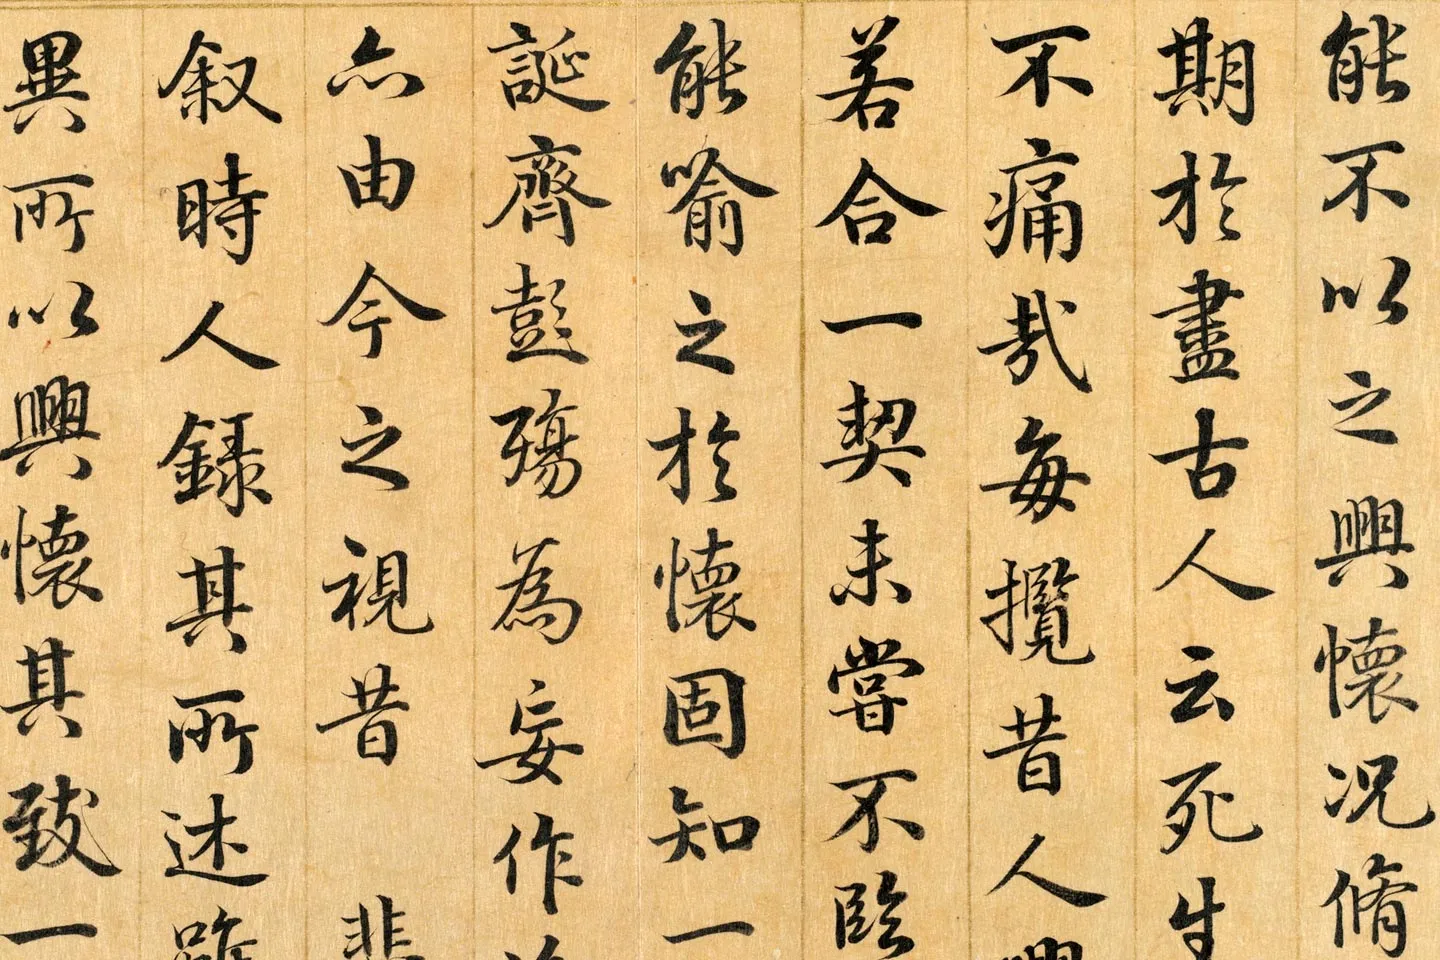 能不以之興懷况脩
期於盡古人云死生
不痛哉每攬昔人興
若合一契未嘗不臨
能喻之於懷固知一
誕齊彭殤為妄作後
亦由今之視昔 悲
叙時人録其所述雖
異所以興懷其致一